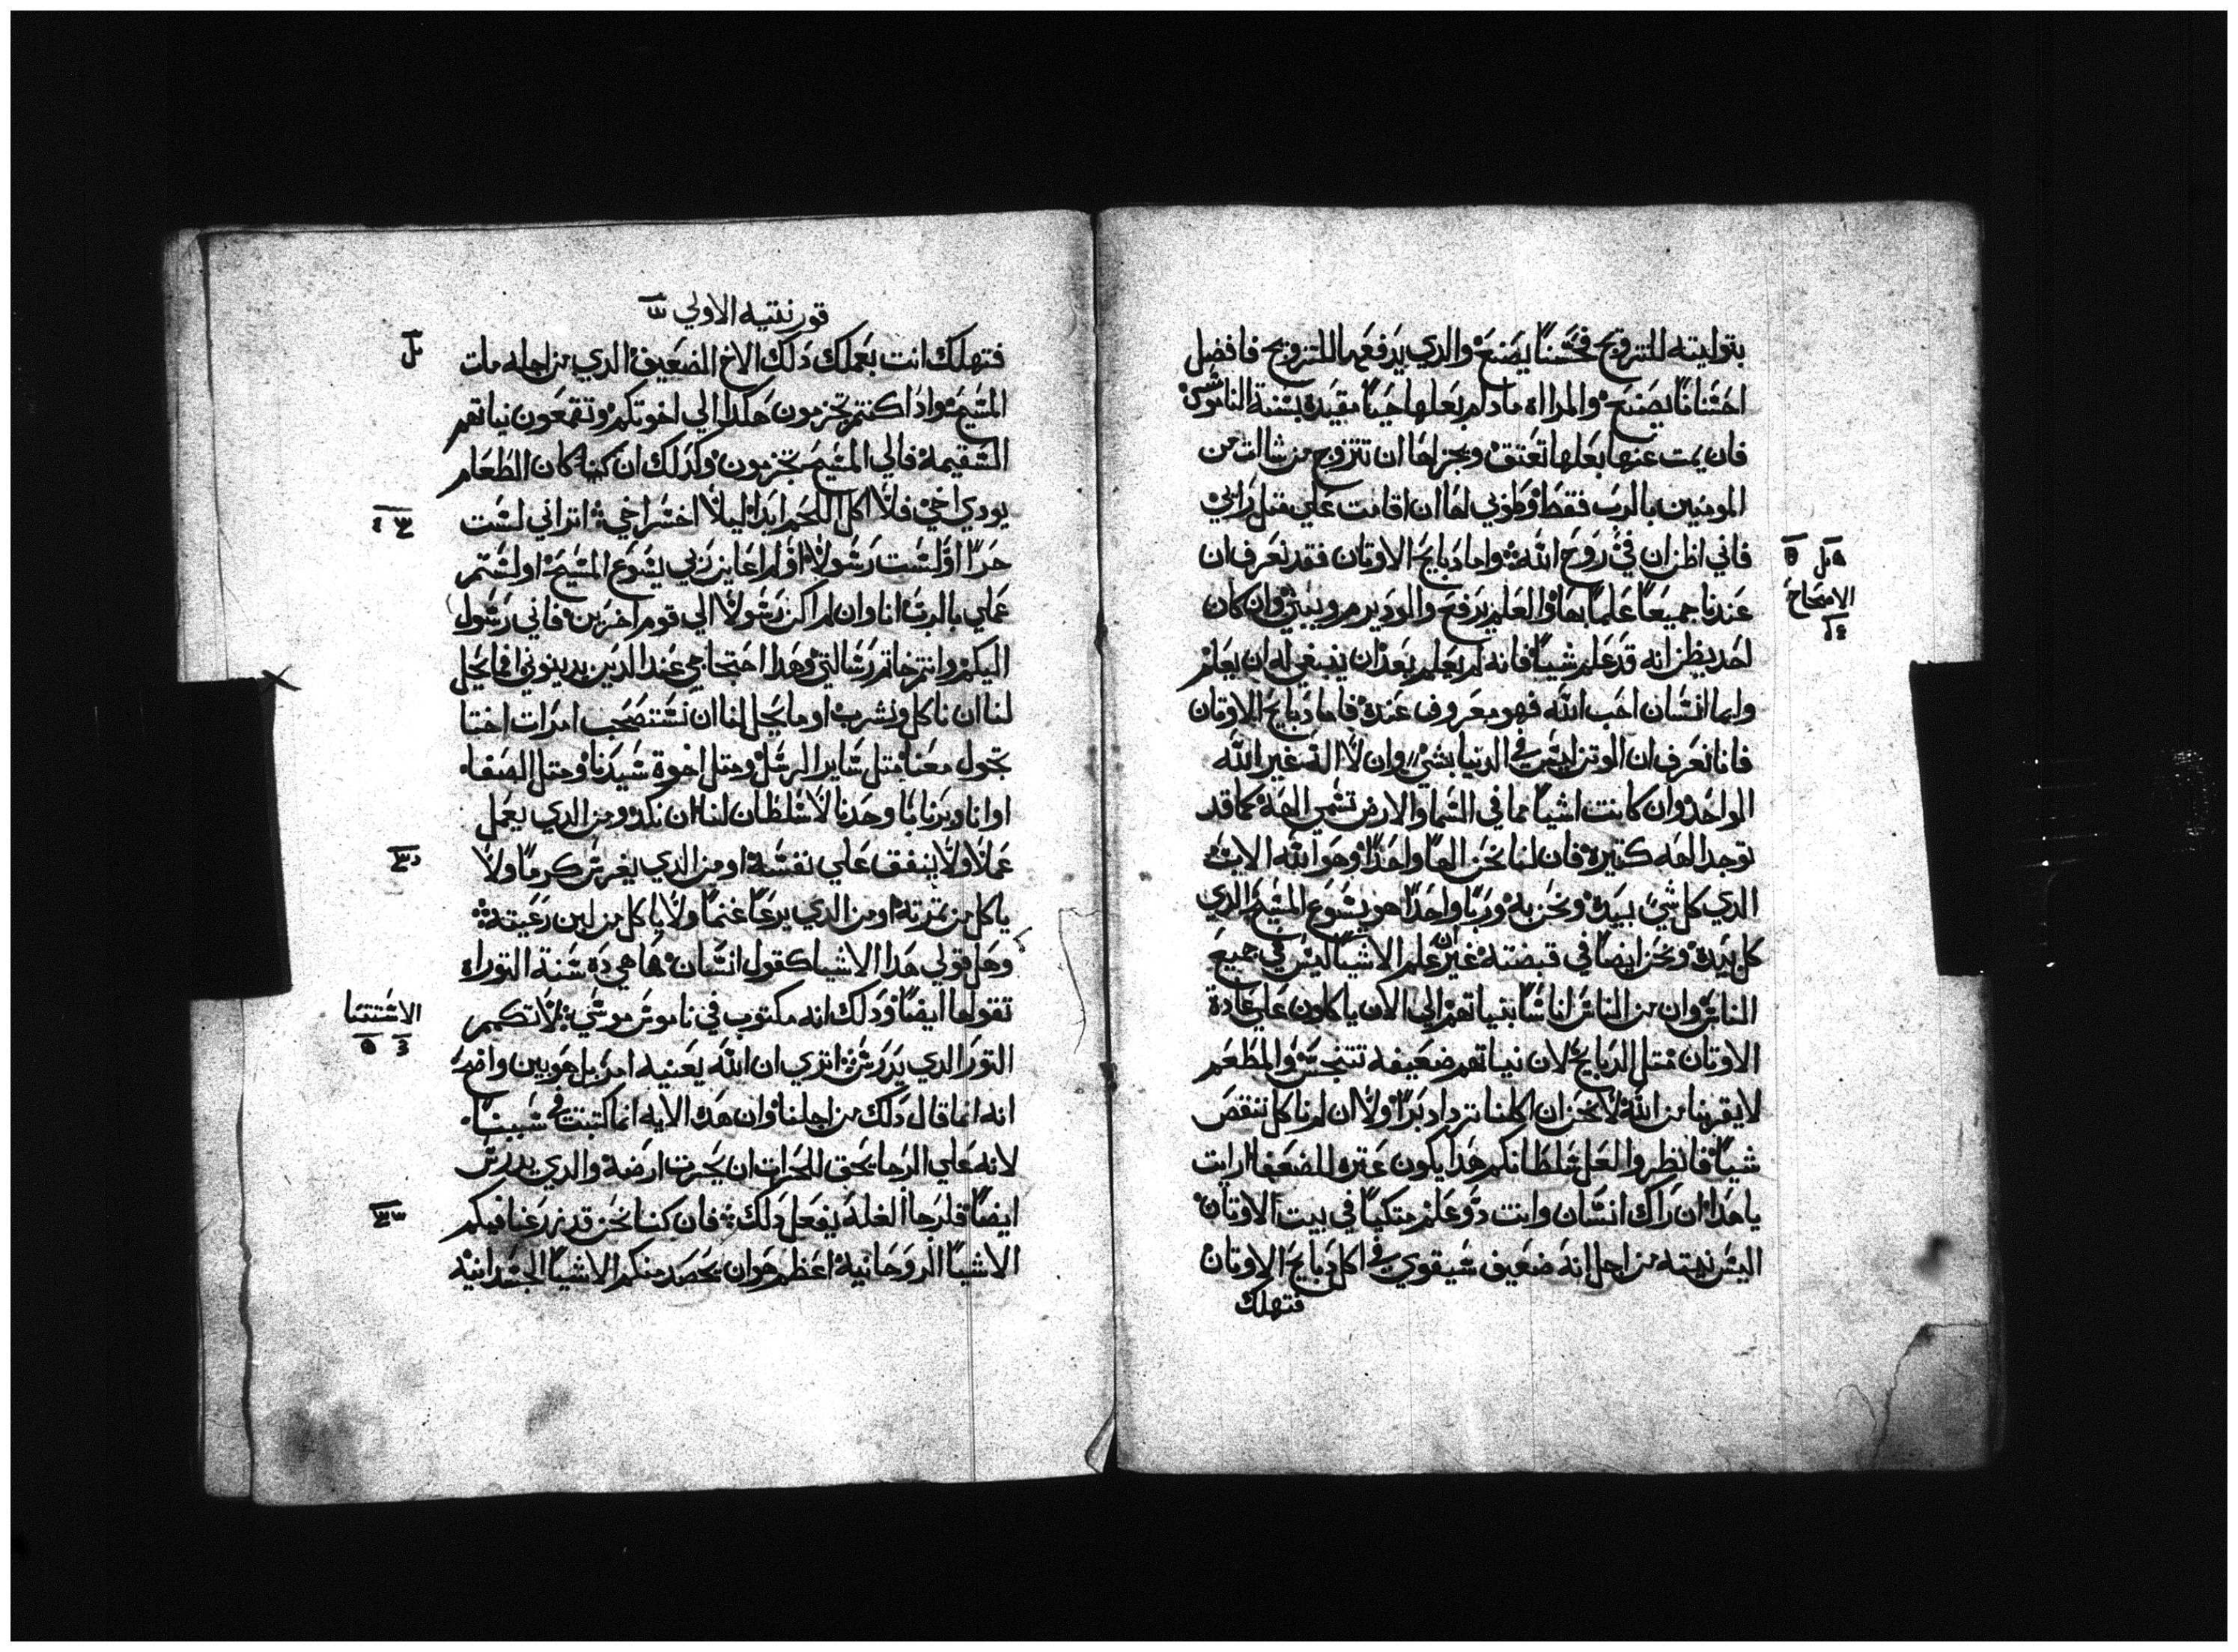 بتوليته للتزويج فحَسَنًا يصَنعَ والدي يدَفعَها للتزويج فافضل
احَسَنانًا يصَنعَ والمراه مادام بعَلها حَيًا مقيدة بسَنة الناموس
فان يمت عنها بعَلها تعَتق ويجز لها ان تتزوج من شات من
المومنين بالرب فقط وطوبي لها ان اقامت علي متل رَايي
فاني اظن ان في رَوحَ الله واما دبايحَ الاوتان فقد نعَرف ان
عَندنا جميعَا عَلمًا بها والعَلم يرَفعَ والود يبر ويبني وان كان
احَد يظن انه قد عَلم شيًا فانه لم يعَلم بعَد ان ينبغي له ان يعَلم
وايما انسَان احَب الله فهو معَروف عَنده فاما دبايحَ الاوتان
فانا نعَرف ان الوتن ليسَ في الدنيا بشي وان لا اله غير الله
الواحَد وان كانت اشيا مما في السَما والارض تسَمي الهه كما قد
توجد الهه كتيرة فان لنا نحَن الهًا واحَدًا وهَو الله الاب
الدي كل شي بيَده ونحَن به وربًا واحَدًا هَو يسَوع المسَيحَ الدي
كل بيَده ونحَن ايضًا في قبضته غير ان عَلم الاشيا ليسَ في جميعَ
الناسَ وان من الناسَ اناسًا بنياتهم الي الان ياكلون علي عادة
الاوتان متل الدبايحَ لان نياتهم ضعَيفه تتنجسَ والمطعَم
لا يقربنا من الله لا نحَن ان اكلنا نزداد بَرًا ولا ان لم ناكل ننقص
شيًا فانظروا لعَل سَلطانكم هَدا يكون عَتره للضعَفا ارايت
يا هَدا ان راك انسَان وانت دَو عَلم متكيًا في بيت الاوتان
اليسَ نيته من اجل انه ضعَيف سَيقوي في اكل دبايحَ الاوتان
فتهلك
ه مل ٥
الاصحَاح
٤ل
قورنتيه الاولي
فتهلك انت بعَملك دَلك الاخ الضعَيف الدي من اجله مات
المسَيحَ وادا كنتم تجزمون هَكدا الي اخوتكم وتقمعَون نياتهم
السَقيمة فالي المسَيحَ تجزمون وكدلك ان كان الطعَام
يودي اخي فلا اكل اللحَم ابدًا ليلا اخسَر اخي اتراني لسَت
حَرًا او لسَت رَسَولًا او لم اعَاين ربي يسَوع المسَيحَ او لسَتم
عَملي بالرب انا وان لم اكن رَسَولًا الي قوم اخرَين فاني رَسَول
اليكم وانتم خاتم رَسَالتي وهَدا احَتجاجي عَند الدين يدينوني اما يحَل
لنا ان ناكل ونشرب او ما يحَل لنا ان نسَتصَحَب امرات اختا
تجول معَنا متل سَاير الرسَل ومتل اخوة سَيدنا ومتل الصفا
او انا وبرنابا وحَدنا لا سَلطان لنا ان نكد ومن الدي يعَمل
عَملًا ولا ينفق عَلي نفسَه او من الدي يغرسَ كرمًا ولا
ياكل من تمرته او من الدي يرعَا غنمًا ولا ياكل من لبن رَعَيته
وهَل قولي هَدا الاشيا كقول انسَان ها هي دَه سَنة التوراه
تقولها ايضًا ودَلك انه مكتوب في ناموسَ موسَي لا تكمم
التور الدي يدرسَ اتري ان الله يعَنيه امر بل هَو بين واضحَ
انه انما قال دَلك من اجلنا وان هَده الايه انما كتبت في سَببنا
لانه عَلي الرجا يحَق للحَرات ان يحَرت ارَضه والدي يدرسَ
ايضًا فلرجا الغلة يفعَل دَلك فان كنا نحَن قد زرعَنا فيكم
الاشيا الروحَانية اعَظم هَو ان نحَصَد منكم الاشيا الجسَدانيه
الاسَتتنا